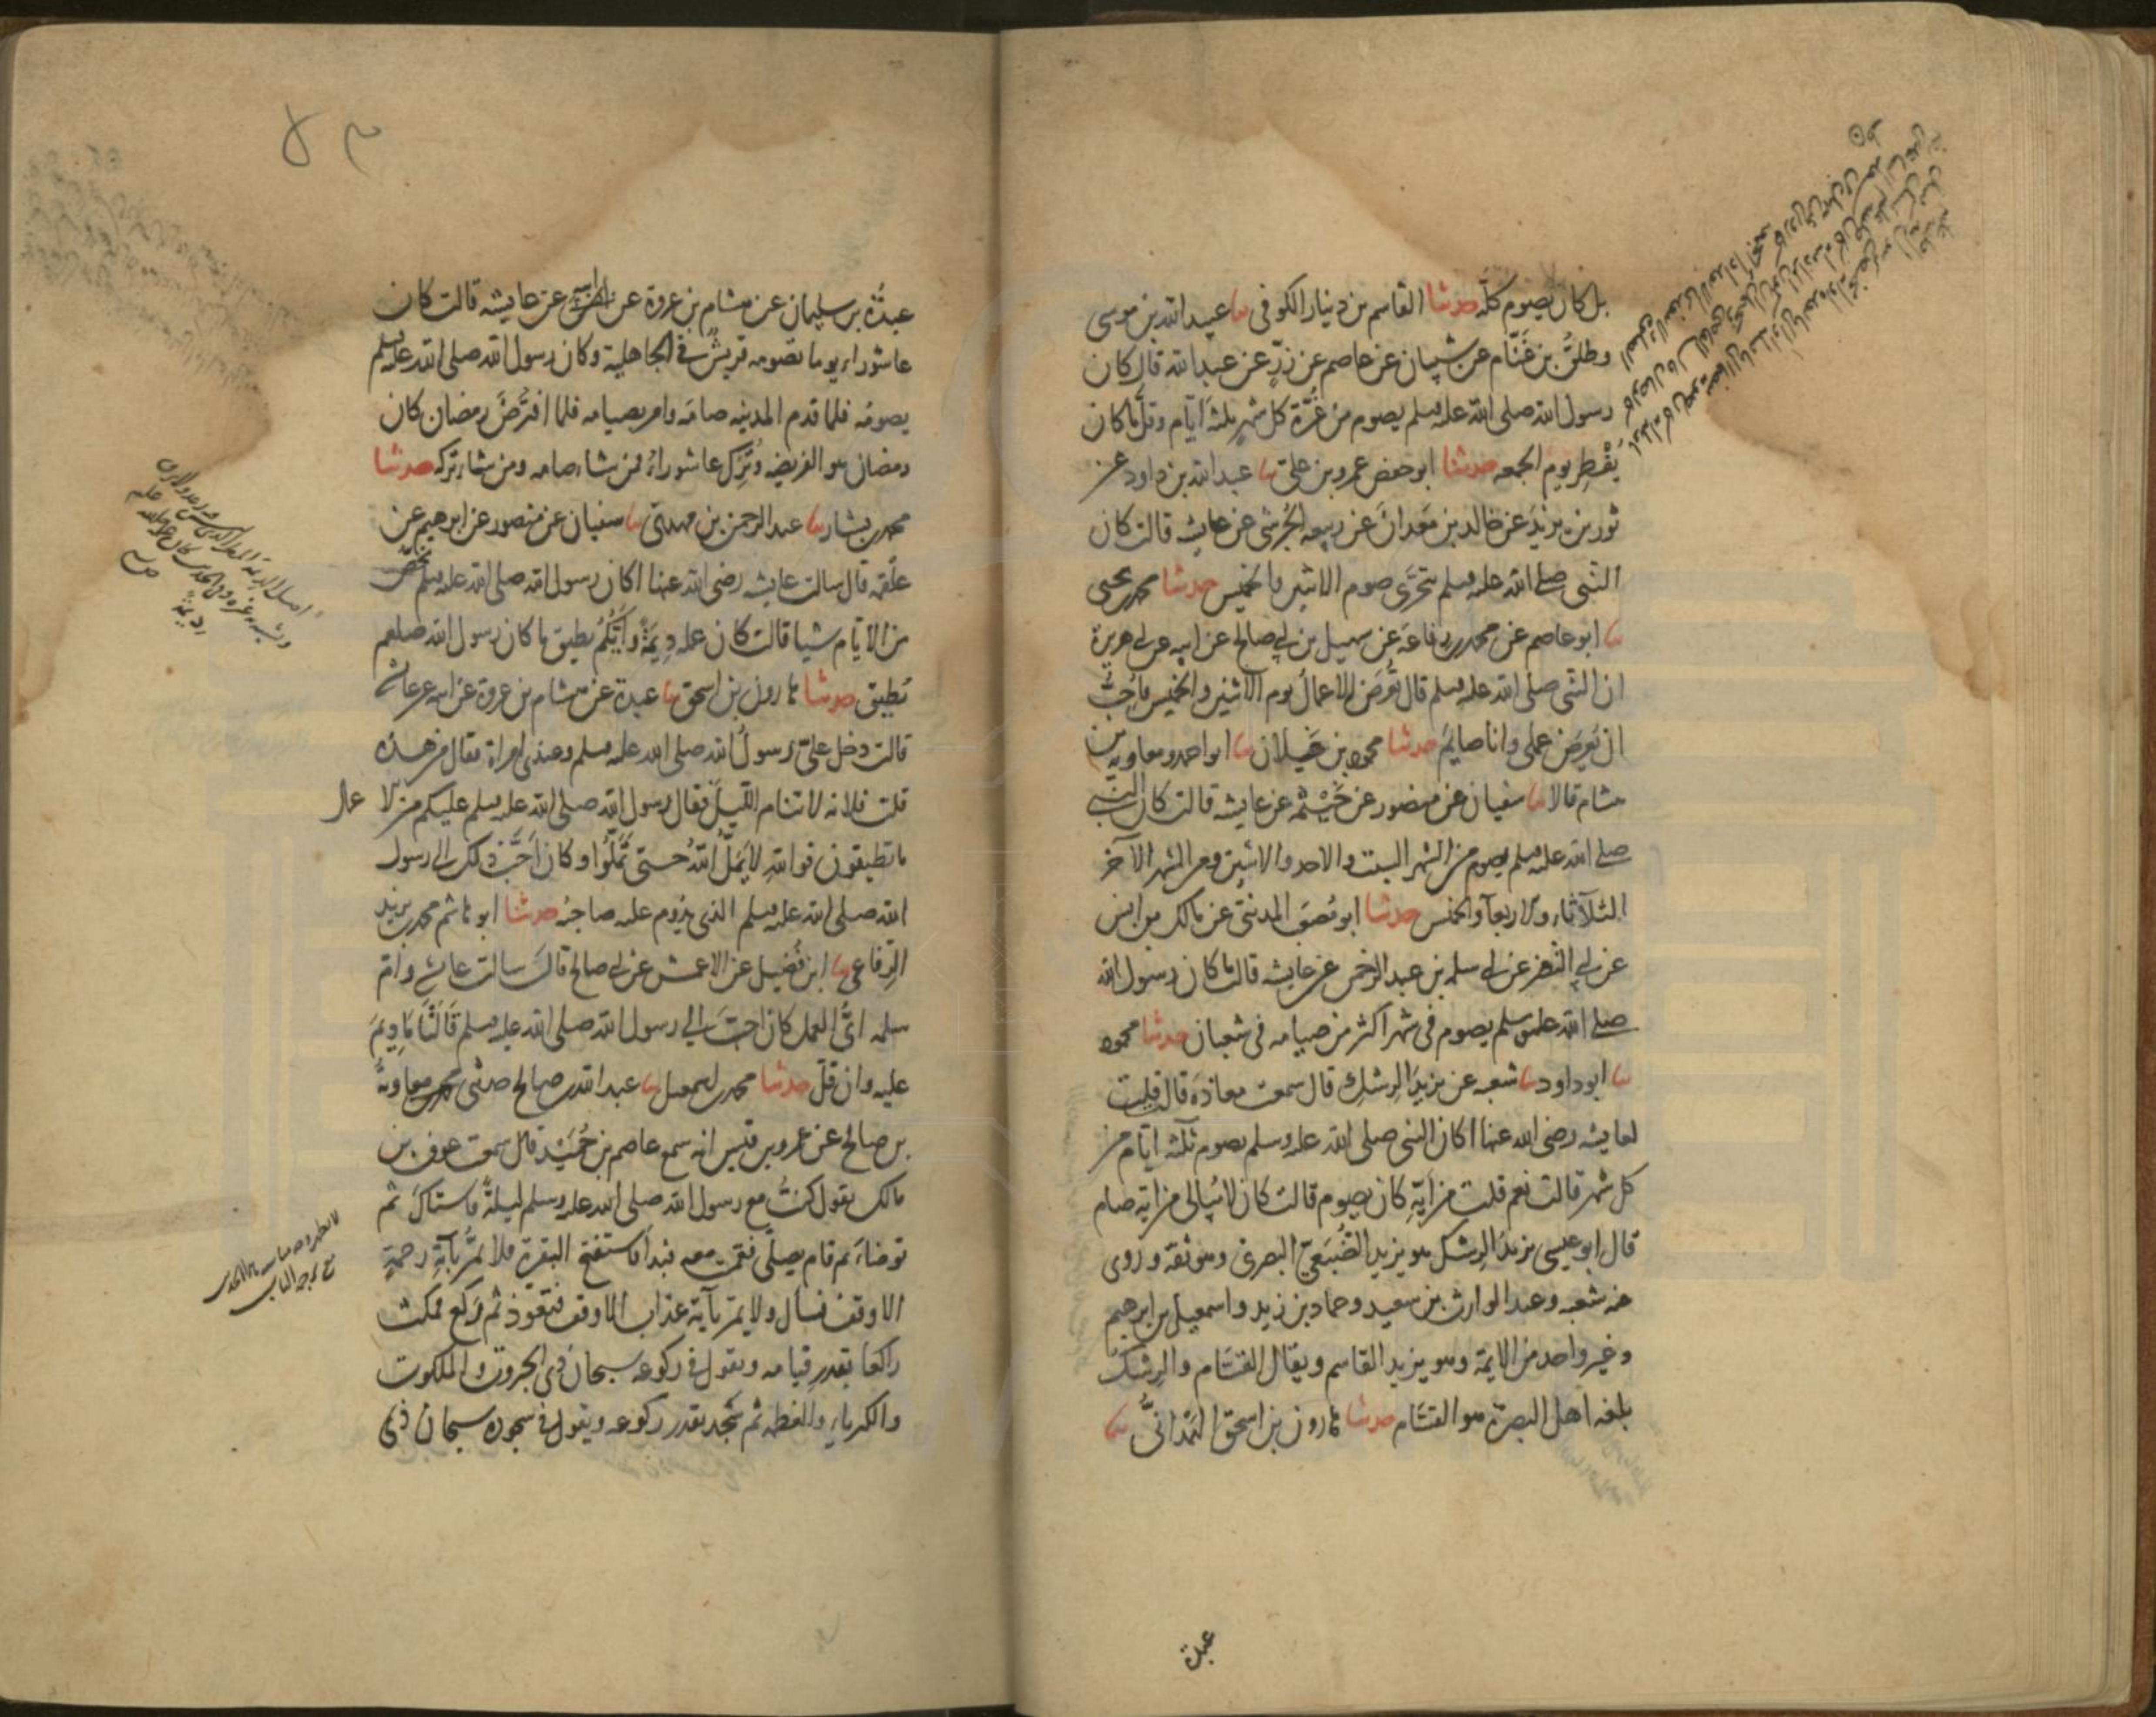 بل كان يصوم كله حدثنا القاسم بن دينار الكوفى ثنا عبيد الله بن موسى
وطلق بن غنّام عن شيبان عن عاصم عن زرّ عن عبد الله قال كان
رسول الله صلى الله عليه وسلم يصوم من غُرّة كل شهر ثلثة ايّام وقلّما كان
يفطر يوم الجمعه حدثنا ابو حفص عمرو بن علىّ ثنا عبد الله بن داود عن
ثور بن يزيد عن خالد بن معدان عن ربيعه الجُرشى عن عايشه قالت كان
النبى صلى الله عليه وسلم يتحرّى صوم الاثنين والخميس حدثنا محمد بن يحيى
ثنا ابو عاصم عن محمد بن رفاعة عن سهيل بن ابى صالح عن ابيه عن ابى هريرة
ان النبى صلى الله عليه وسلم قال تُعرض الاعمال يوم الاثنين والخميس فاُحِبُّ
ان يُعرض عملى وانا صايم حدثنا محمود بن غيلان ثنا ابو احمد ومعاوية بن
هشام قالا ثنا سفيان عن منصور عن خَيْثمه عن عايشه قالت كان النبى
صلى الله عليه وسلم يصوم من الشهر السبت والاحد والاثنين ومن الشهر الآخر
الثلآثاء والاربعآ والخميس حدثنا ابو مصعب المدينىّ عن مالك بن انس
عن ابى النضر عن ابى سلمه بن عبد الرحمن عن عايشه قالت ما كان رسول الله
صلى الله عليه وسلم يصوم فى شهر اكثر من صيامه فى شعبان حدثنا محمود
ثنا ابو داود ثنا شعبه عن يزيد الرِشك قال سمعت معاذة قالت قلت
لعايشه رضى الله عنها اكان النبى صلى الله عليه وسلم يصوم ثلثه ايّام من
كل شهر قالت نعم قلت من ايّهِ كان يصوم قالت كان لا يُبالى من ايّه صام
قال ابو عيسى يزيد الرِشك هو يزيد الضُبَعىّ البصرى وهو ثقة وروى
عنه شعبه وعبد الوارث بن سعيد وحماد بن زيد واسمعيل بن ابرهيم
وغير واحد من الايمة وهو يزيد القاسم ويقال القسّام والرِشك
بلغه اهل البصرة هو القسّام حدثنا هارون بن اسحق الهَمْدانىّ ثنا
عبدة
عبدة بن سليمان عن هشام بن عروة عن ابيه عن عايشه قالت كان
عاشوراء يوما تصومه قريش فى الجاهلية وكان رسول الله صلى الله عليه وسلم
يصومه فلما قدم المدينه صامه وامر بصيامه فلما افتُرِضَ رمضان كان
رمضان هو الفريضه وتُرِك عاشوراءُ فمن شاء صامه ومن شاء تركه حدثنا
محمد بن بشار ثنا عبد الرحمن بن مهدىّ ثنا سفيان عن منصور عن ابرهيم عن
علقمه قال سالت عايشه رضى الله عنها اكان رسول الله صلى الله عليه وسلم يخصّ
من الايّام شيا قالت كان عمله دِيمَةً وايُّكُم يطيق ما كان رسول الله صلعم
يُطيق حدثنا هارون بن اسحق ثنا عبدة عن هشام بن عروة عن ابيه عن عايشه
قالت دخل علىّ رسولُ الله صلى الله عليه وسلم وعندى امراة فقال من هذه
قلت فلانه لا تنام الليلَ فقال رسول الله صلى الله عليه وسلم عليكم من الاعمال
ما تطيقون فوالله لا يَمَلُّ اللهُ حتى تَمَلُّوا وكان احَبَّ ذلك الى رسول
الله صلى الله عليه وسلم الذى يدُوم عليه صاحبُه حدثنا ابو هاشم محمد بن يزيد
الرِفاعى ثنا ابن فُضيل عن الاعمش عن ابى صالح قال سالت عايشه وامّ
سلمه اىُّ العمل كان احبّ الى رسول الله صلى الله عليه وسلم قالتا ما دِيمَ
عليه وان قلّ حدثنا محمد بن اسمعيل ثنا عبد الله بن صالح حدثنى معاوية
بن صالح عن عمرو بن قيس انه سمع عاصم بن حُمَيْد قال سمعت عوف بن
مالك يقول كنتُ مع رسول الله صلى الله عليه وسلم ليلةً فاستاكَ ثم
توضاء ثم قام يصلّى فقمت معه فبدأ فاستفتح البقرة فلا يَمُرُّ بآيةِ رحمةٍ
الا وقف فسال ولا يمرّ بآية عذاب الا وقف فتعوّذ ثم ركع فمكث
راكعا بقدر قيامه ويقول فى ركوعه سبحان ذى الجبروت والملكوت
والكبرياءِ والعظمه ثم سَجد بقدر ركوعه ويقول فى سجوده سبحان ذى